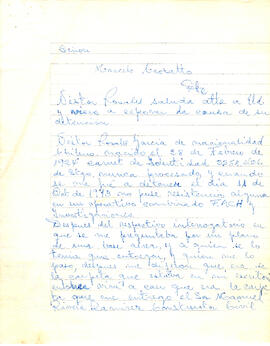 Señor
Marcelo
Néstor Rosales saluda atte a Ud
y viene a exponer la causa de su
detención
Néstor Rosales García de nacionalidad
chileno nacido el 28 de Febrero de
carnet de identidad
de Stgo, nunca procesado, y cuando
se me fue a detener el día 11 de
Oct de 1973 no puse resistencia alguna
en un operativo combinado FACH e
Investigaciones.
Después del respectivo interrogatorio en
que se me preguntaba por un plano
de una base aérea, y a quien se lo
tenía que entregar, y quien me lo
pasó, después me dijeron que era se
la carpeta que estaba en mi escritorio
entonces vine a caer que era la carpe
ta que me entregó el Sr Manuel
Constructor Civil